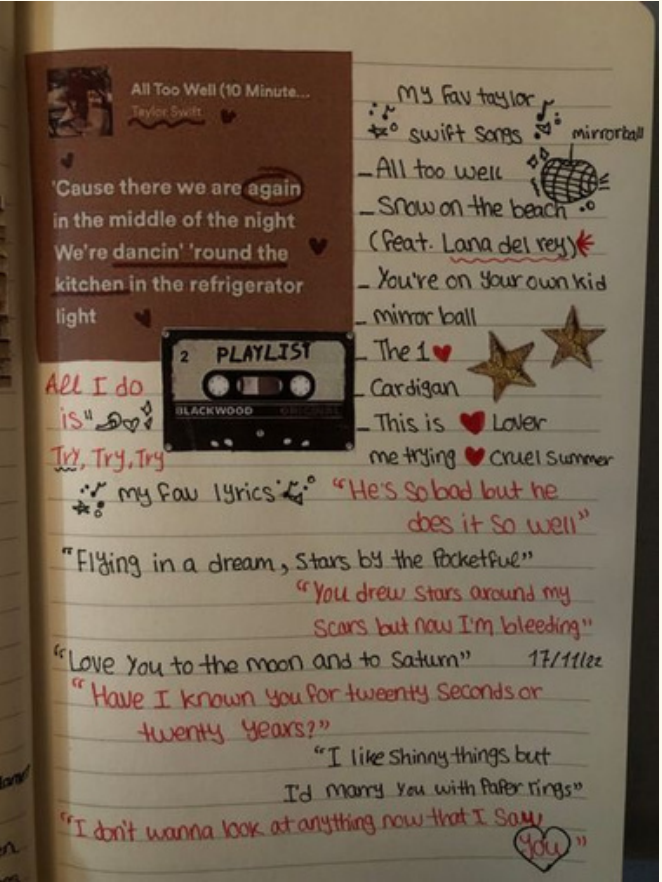 All Too Well (10 Minute...
Taylor Swift
'Cause there we are again
in the middle of the night
We're dancin' 'round the
kitchen in the refrigerator
light
2 PLAYLIST
BLACKWOOD ORIGINAL
All I do
is"
Try, Try, Try
my fav taylor
swift songs
mirrorball
- All too well
- Snow on the beach
(feat. Lana del rey)
- You're on your own kid
- mirror ball
- The 1
- Cardigan
- This is
me trying
Lover
cruel summer
my fav lyrics
"He's so bad but he
does it so well"
"Flying in a dream, stars by the Pocketful"
"You drew stars around my
scars but now I'm bleeding"
"Love you to the moon and to Saturn"
17/11/22
"Have I known you for tweenty seconds or
twenty years?"
"I like shinny things but
I'd marry you with Paper rings"
"I don't wanna look at anything now that I saw
you"